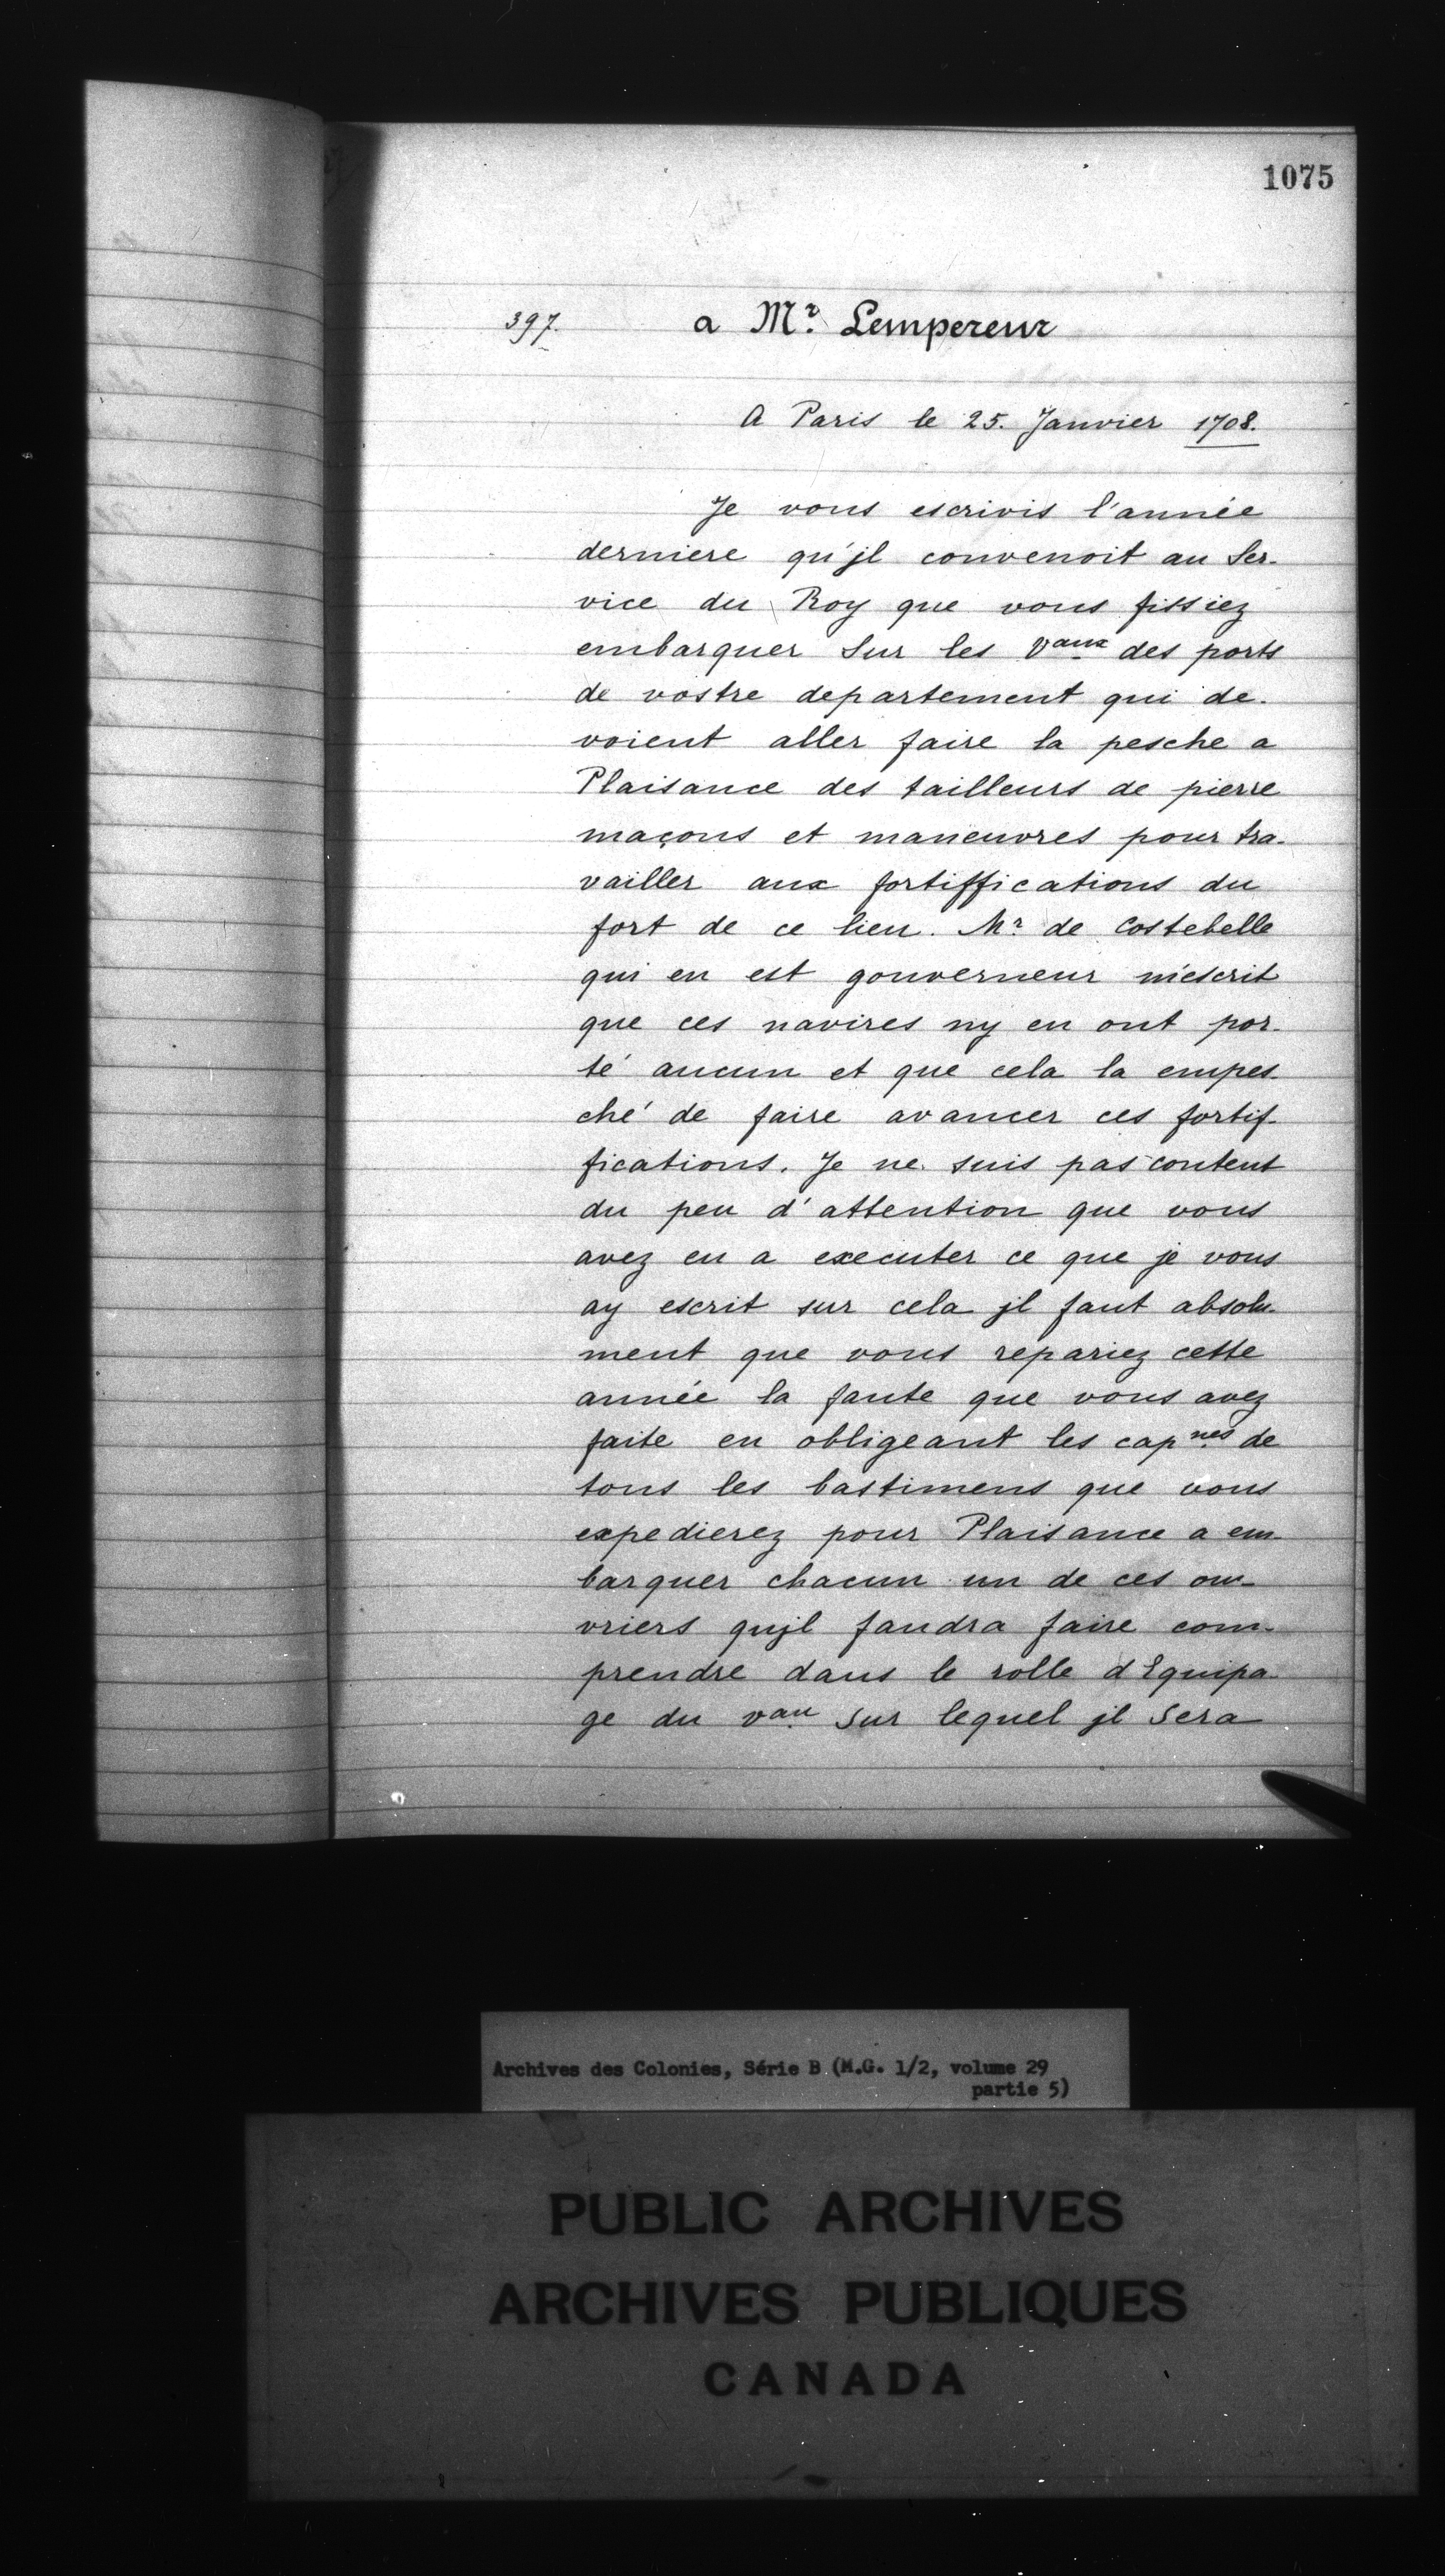 1075
397. a Mr. Lempereur
A Paris le 25. Janvier 1708.
Je vous escrivis l'année
derniere qu'jl convenoit au Ser-
vice du Roy que vous fissiez
embarquer Sur les Vaux des ports
de vostre departement qui de-
voient aller faire la pesche a
Plaisance des tailleurs de pierre
maçons et maneuvres pour tra-
vailler aux fortiffications du
fort de ce lieu. Mr. de Costebelle
qui en est gouverneur m'escrit
que ces navires ny en ont por-
té aucun et que cela la empes-
ché de faire avancer ces fortif-
fications. Je ne suis pas content
du peu d'attention que vous
avez eu a executer ce que je vous
ay escrit sur cela jl faut absolu-
ment que vous repariez cette
année la faute que vous avez
faite en obligeant les capnes de
tous les bastimens que vous
expedierez pour Plaisance a em-
barquer chacun un de ces ou-
vriers qujl faudra faire com-
prendre dans le rolle d'Equipa-
ge du vau Sur lequel jl Sera
Archives des Colonies, Série B (M.G. 1/2, volume 29
partie 5)
PUBLIC ARCHIVES
ARCHIVES PUBLIQUES
CANADA